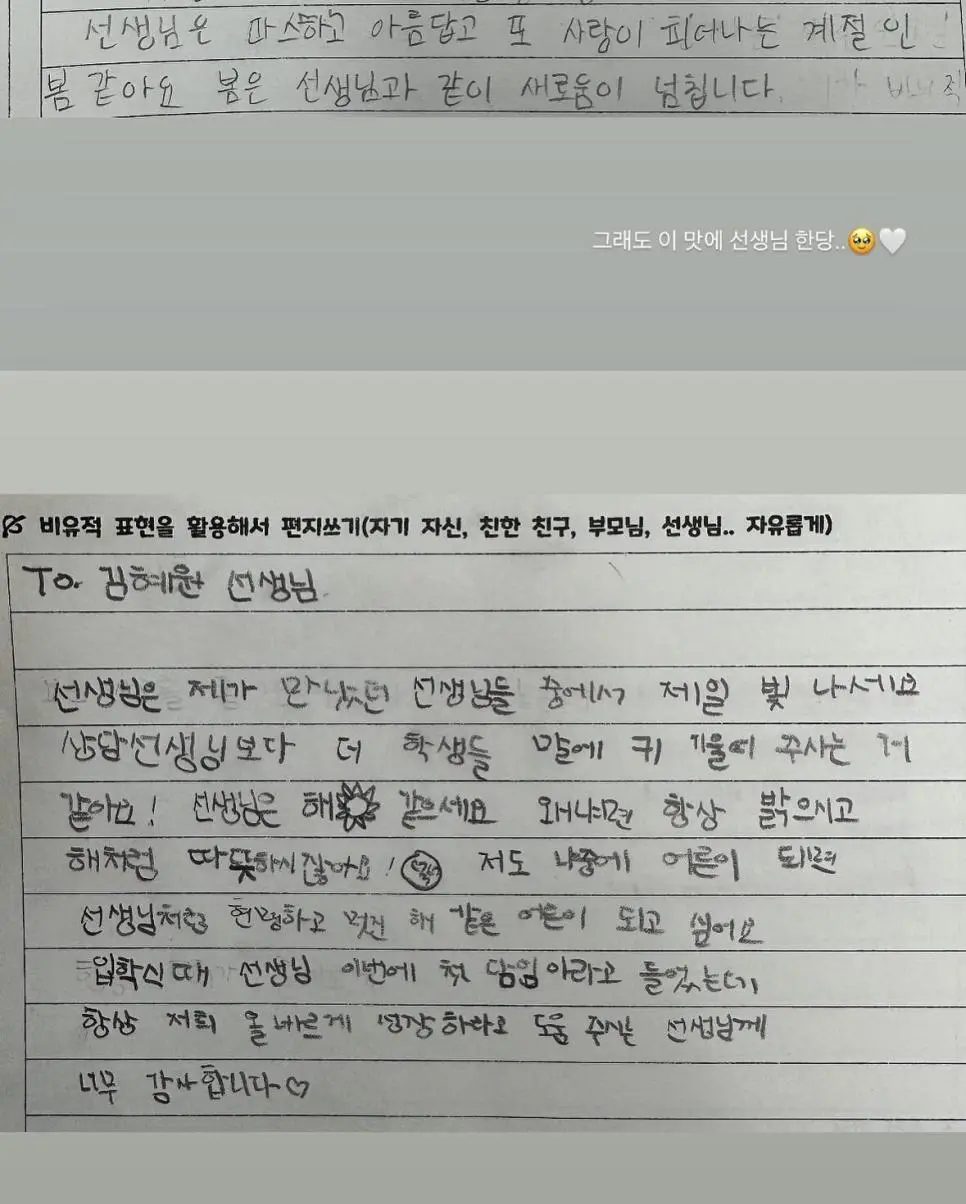 선생님은 따스하고 아름답고 또 사랑이 피어나는 계절 인
봄 같아요 봄은 선생님과 같이 새로움이 넘칩니다.
그래도 이 맛에 선생님 한당..🥹🤍
비유적 표현을 활용해서 편지쓰기(자기 자신, 친한 친구, 부모님, 선생님.. 자유롭게)
To. 김혜원 선생님.
선생님은 제가 만났던 선생님들 중에서 제일 빛 나세요
상담선생님보다 더 학생들 말에 귀 기울여 주시는 거
같아요! 선생님은 해 같으세요 왜냐면 항상 밝으시고
해처럼 따뜻하시잖아요! 저도 나중에 어른이 되면
선생님처럼 현명하고 멋진 해 같은 어른이 되고 싶어요
입학식때 선생님 이번에 첫 담임이라고 들었는데
항상 저희 올바르게 성장하라고 도움 주시는 선생님께
너무 감사합니다♡